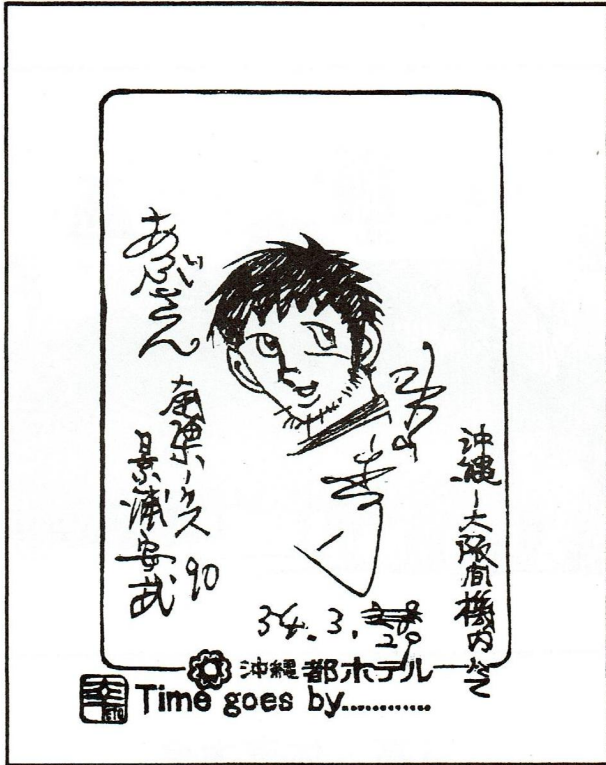 あぶさん
南海ホークス 90
景浦安武
沖縄ー大阪間機内にて
54.3.29
沖縄 都ホテル
Time goes by............